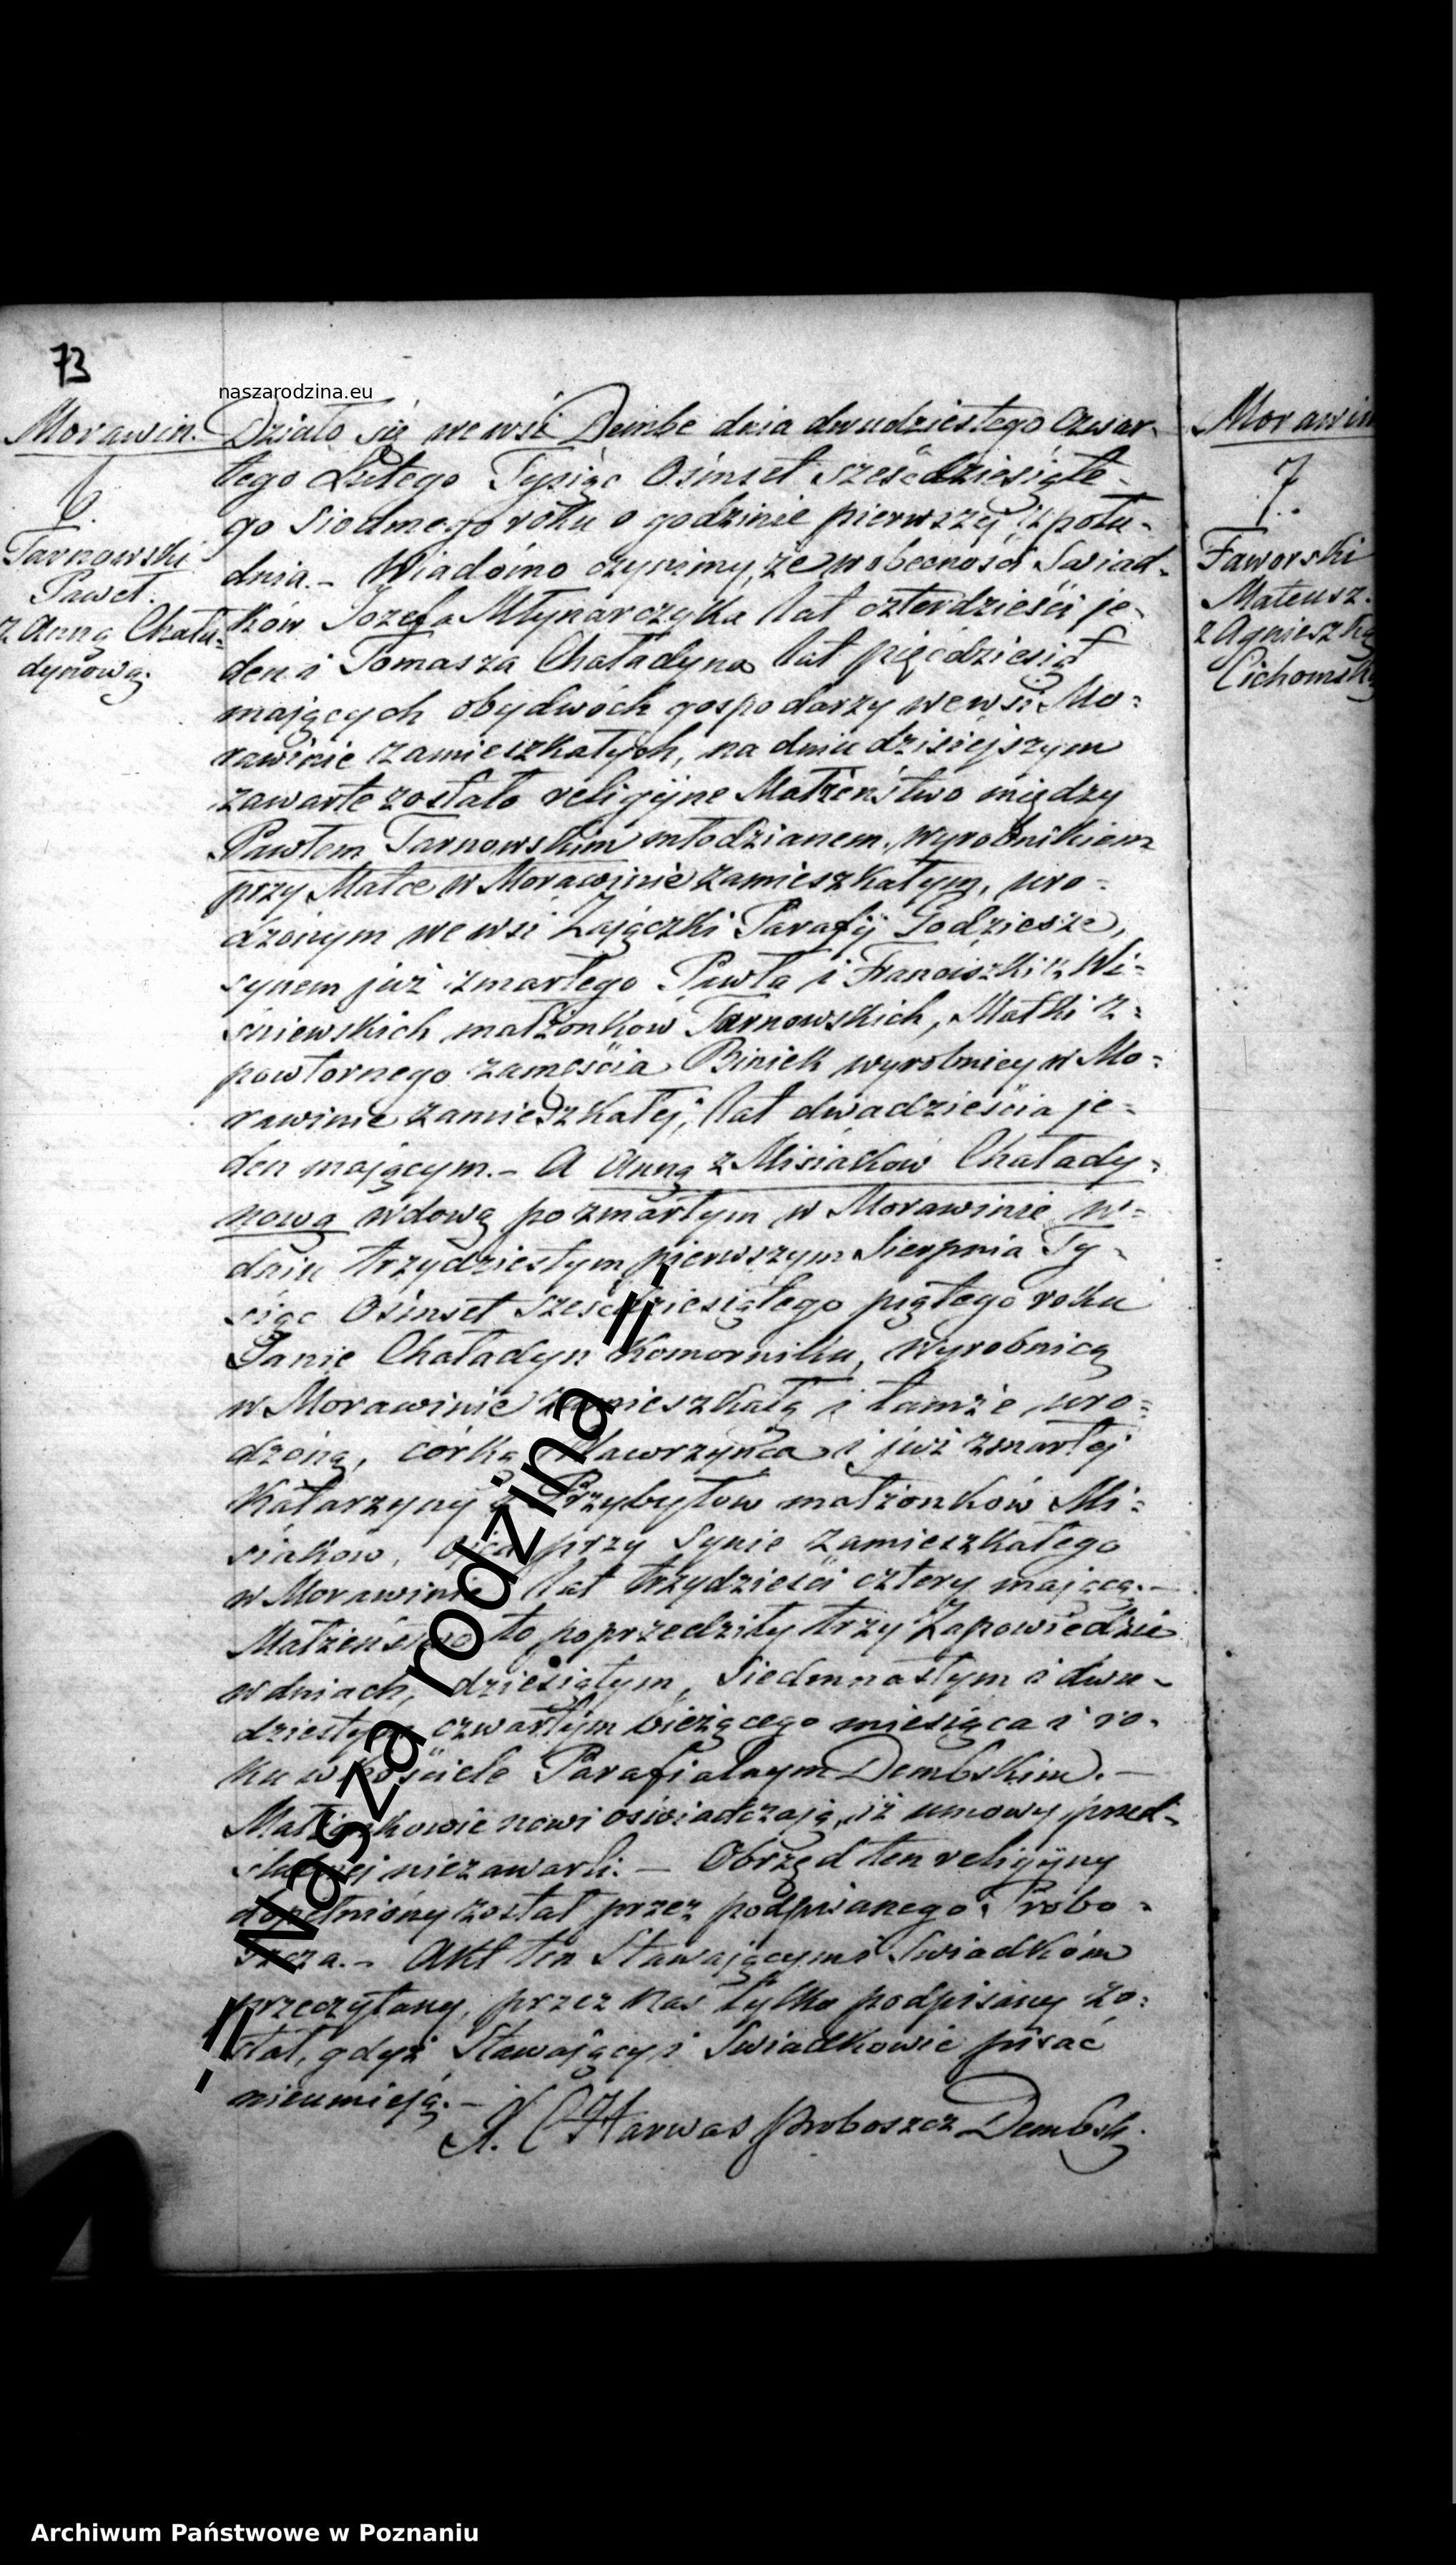 73
naszarodzina.eu
Morawin.
6.
Tarnowski
Paweł.
z Anną Chała-
dynową.
Działo się we wsi Dembe dnia dwudziestego czwar-
tego Lutego Tysiąc Ośmset sześćdziesiąte-
go siodmego roku o godzinie pierwszej z połu-
dnia. – Wiadomo czynimy, że w obecności Świad-
ków Józefa Młynarczyka lat czterdzieści je-
den i Tomasza Chaładyna lat pięćdziesiąt
mających obydwóch gospodarzy we wsi Mo-
rawinie zamieszkałych, na dniu dzisiejszym
zawarte zostało religijne Małżeństwo między
Pawłem Tarnowskim młodzianem, wyrobnikiem
przy Matce w Morawinie zamieszkałym, uro-
dzonym we wsi Zajączki Parafij Godziesze,
synem już zmarłego Pawła i Franciszki z Wi-
śniewskich małżonków Tarnowskich, Matki z
powtornego zamęścia Biniek wyrobnicy w Mo-
rawinie zamieszkałej, lat dwadzieścia je-
den mającym. – A Anną z Misiaków Chałady-
nową wdową po zmarłym w Morawinie w
dniu trzydziestym pierwszym Sierpnia Ty-
siąc Ośmset sześćdziesiątego piątego roku
Janie Chaładyn Komorniku, wyrobnicą
w Morawinie zamieszkałą i tamże uro-
dzoną, córką Wawrzyńca i już zmarłej
Katarzyny z Przybyłów małżonków Mi-
siaków, ojca przy Synie zamieszkałego
w Morawinie lat trzydzieści cztery mającą. –
Małżeństwo to poprzedziły trzy Zapowiedzie
w dniach, dziesiątym, siedmnastym i dwu-
dziestym czwartym bieżącego miesiąca i ro-
ku w kościele Parafialnym Dembskim. –
Małżonkowie nowi oświadczają, iż umowy przed-
ślubnej niezawarli. – Obrzęd ten religijny
dopełniony został przez podpisanego Probo-
szcza. – Akt ten Stawającym i Świadkom
przeczytany, przez Nas tylko podpisany zo-
stał, gdyż Stawający i Swiadkowie pisać
nieumieją. –
Harwas Proboszcz Dembsk.
Morawin
7.
Faworski
Mateusz.
z Agnieszką
Cichomską
-= Nasza rodzina =-
Archiwum Państwowe w Poznaniu